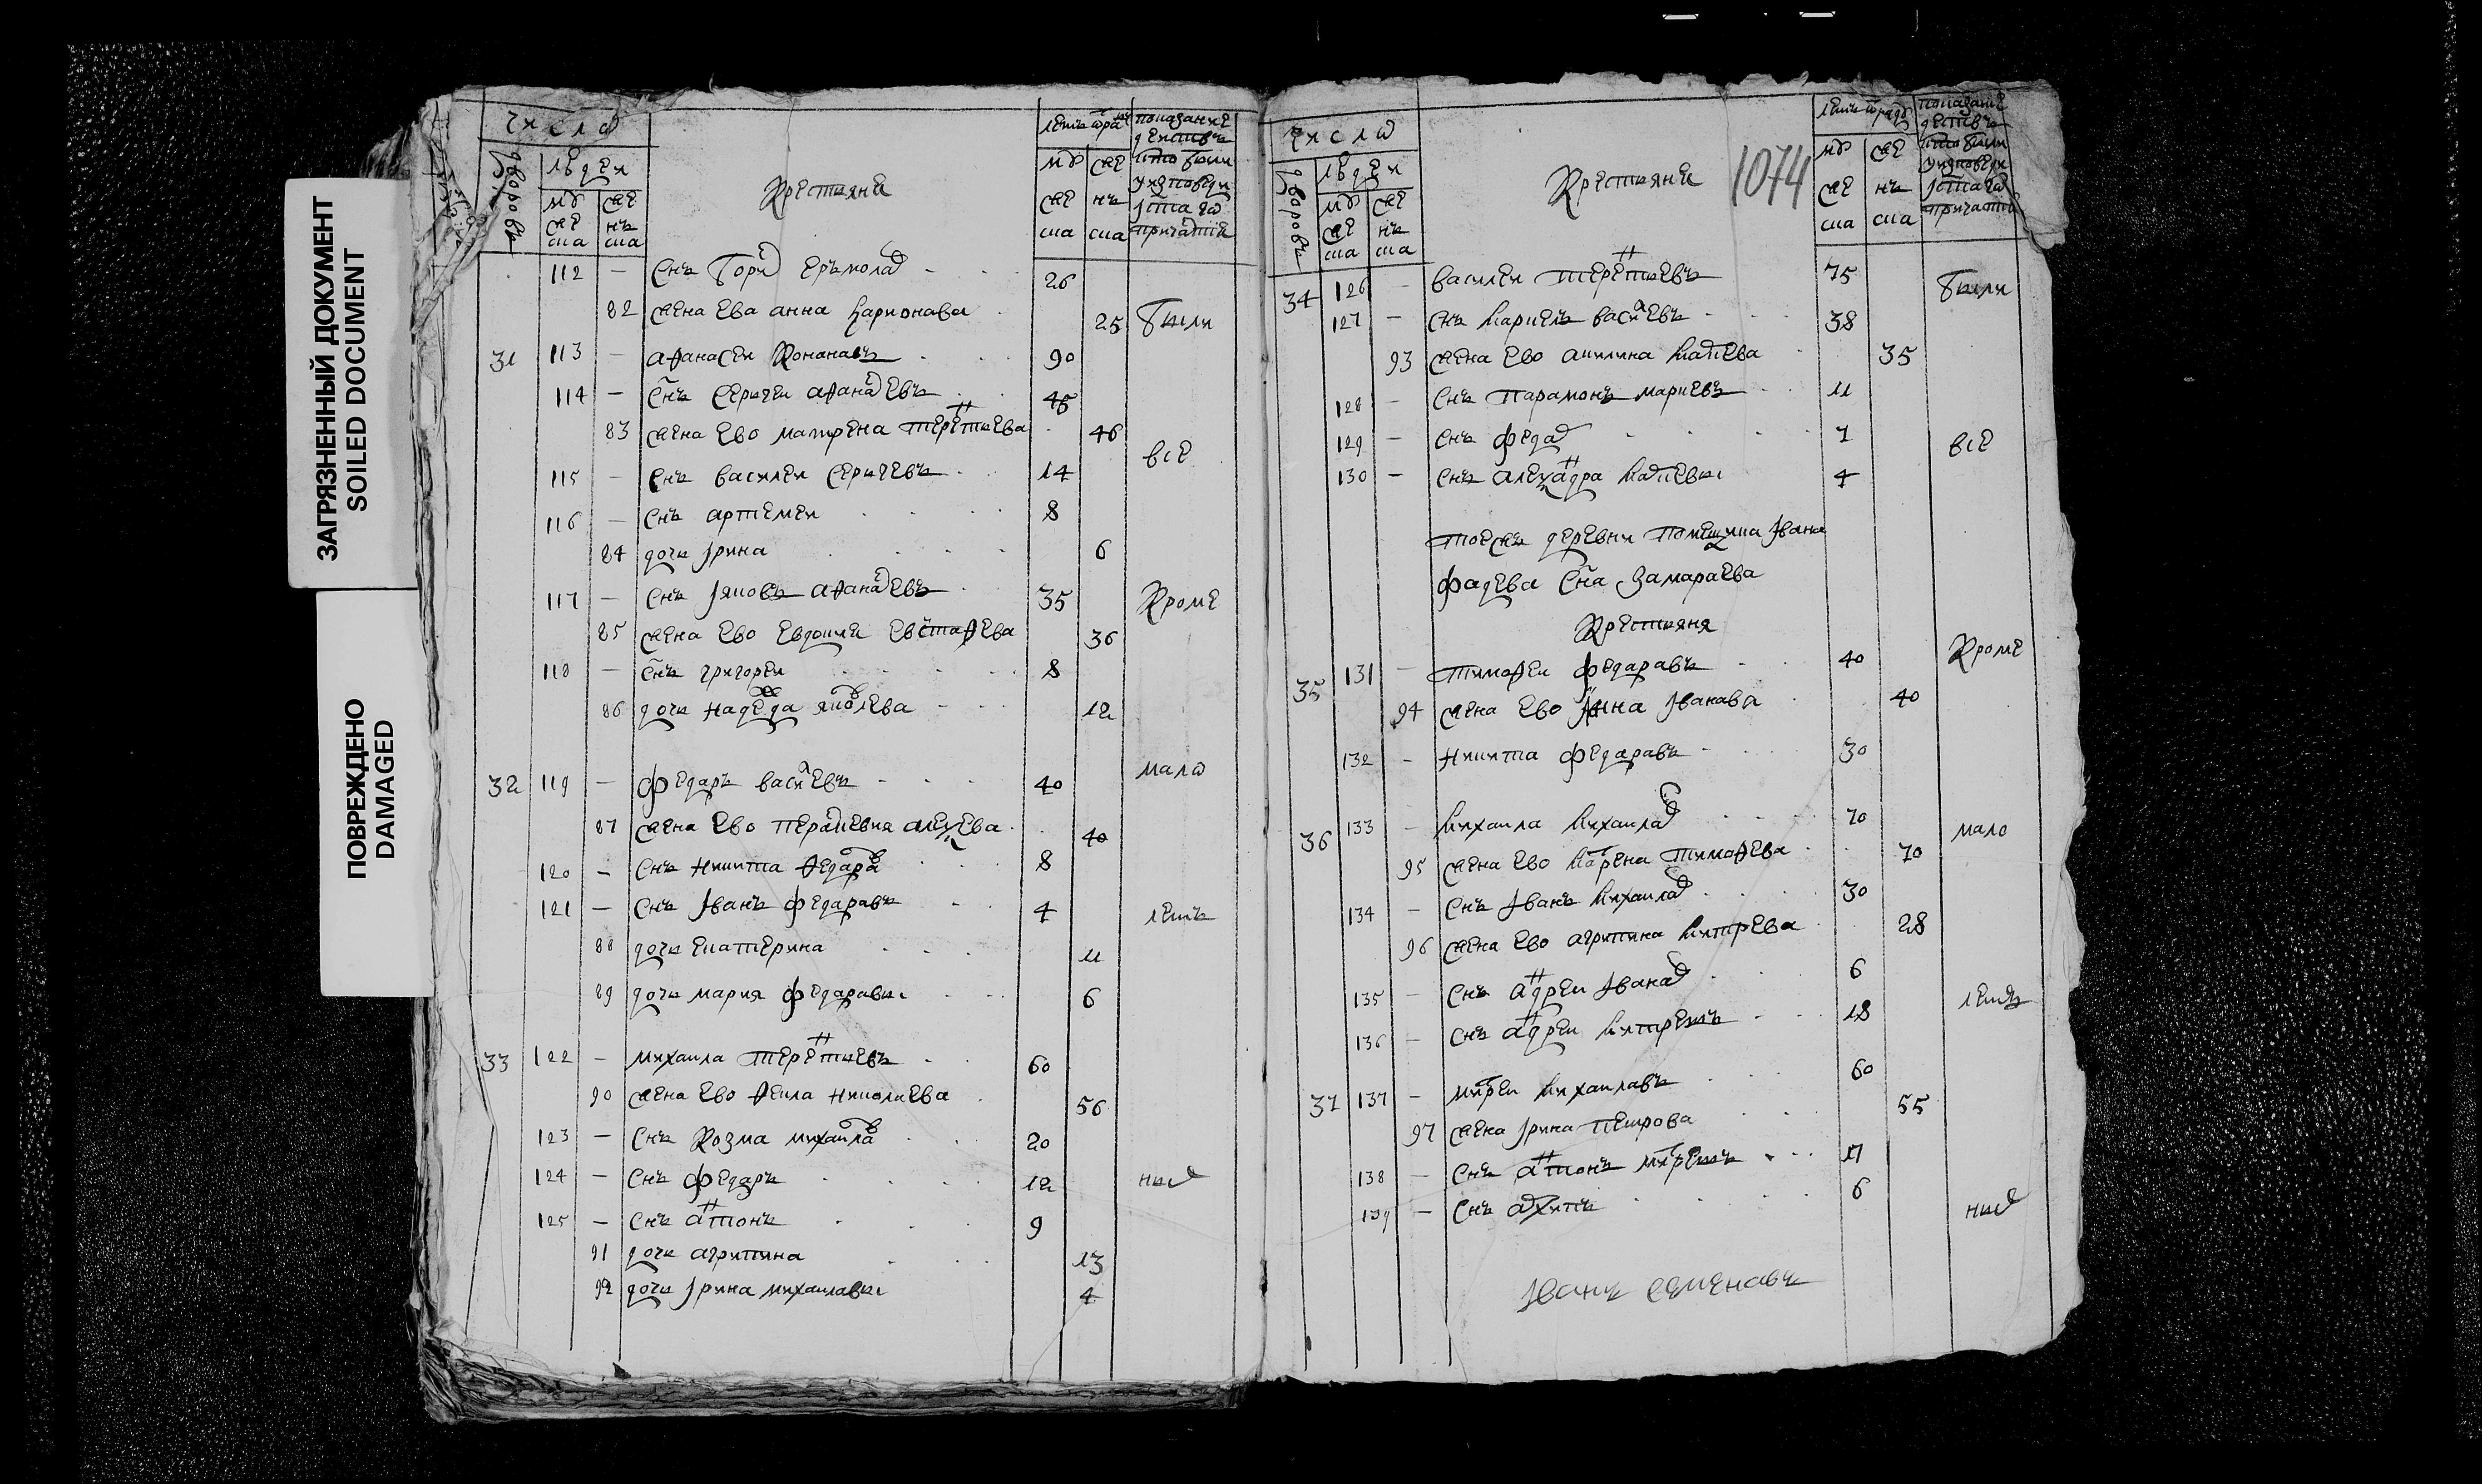 ЗАГРЯЗНЕННЫЙ ДОКУМЕНТ
SOILED DOCUMENT
ПОВРЕЖДЕНО
DAMAGED
число
дворовъ
людеи
муже ска
же нъ ска
Крестьяне
муже ска
же нъ ска
показание
деиствъ
кто были
уисповеди
істаго
причастия
112 — снъ
26
82 жена ева анна Ларионава 25 были
31 113 — аѳанасеи Кононавъ 90
114 — снъ Сергеи аѳанасевъ 45
83 жена ево матрена терентьева 46
всe
115 — снъ василеи Сергеевъ 14
116 — снъ артемеи 8
84 дочь Ірина 6
117 — снъ Іяковъ аѳанасевъ 35 Кроме
85 жена ево евдокия евстаѳева 36
118 — снъ григореи 8
86 дочь надежда яковлева 12
мало
32 119 — федаръ васильевъ 40
87 жена ево алексева 40
120 — снъ никита ѳедаравъ 8
121 — снъ Іванъ федаравъ 4 летъ
88 дочь екатерина 11
89 дочь мария федаравы 6
33 122 — михаила терентьевъ 60
90 жена ево ѳекла николаева 56
123 — снъ Козма михаилавъ 20
124 — снъ федаръ 12
125 — снъ антонъ 9
91 дочь агрипина 13
92 дочь Ірина михаилавы 4
число
дворовъ
людеи
муже ска
же нъ ска
Крестьяне
1074
муже ска
же нъ ска
показание
деиствъ
кто были
уисповеди
істаго
причастия
34 126 — василеи терентьевъ 75 были
127 — снъ васильевъ 38
93 жена ево акилина 35
128 — снъ парамонъ 11
129 — снъ федар 7
всe
130 — снъ александра 4
тоежъ деревни помещика Івана
фадеева сна Замараева
Крестьяня
35 131 — тимоѳеи федаравъ 40 Кроме
94 жена ево Іванава 40
132 — никита федаравъ 30
36 133 — михаила михаилав 70 мало
95 жена ево матрена тимоѳева 70
134 — снъ Іванъ михаилав 30
96 жена ево агрипина митрева 28
135 — снъ андреи Іванав 6
летъ
136 — снъ андреи митревъ 18
37 137 — митреи михаилавъ 60
97 жена Ірина петрова 55
138 — снъ антонъ митревъ 17
139 — снъ архипъ 6
Іванъ семенавъ